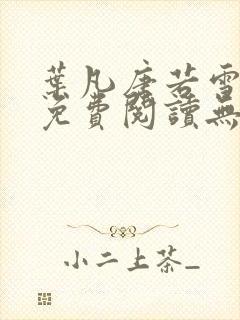 葉凡唐若雪
免費閱讀無
小二上茶_